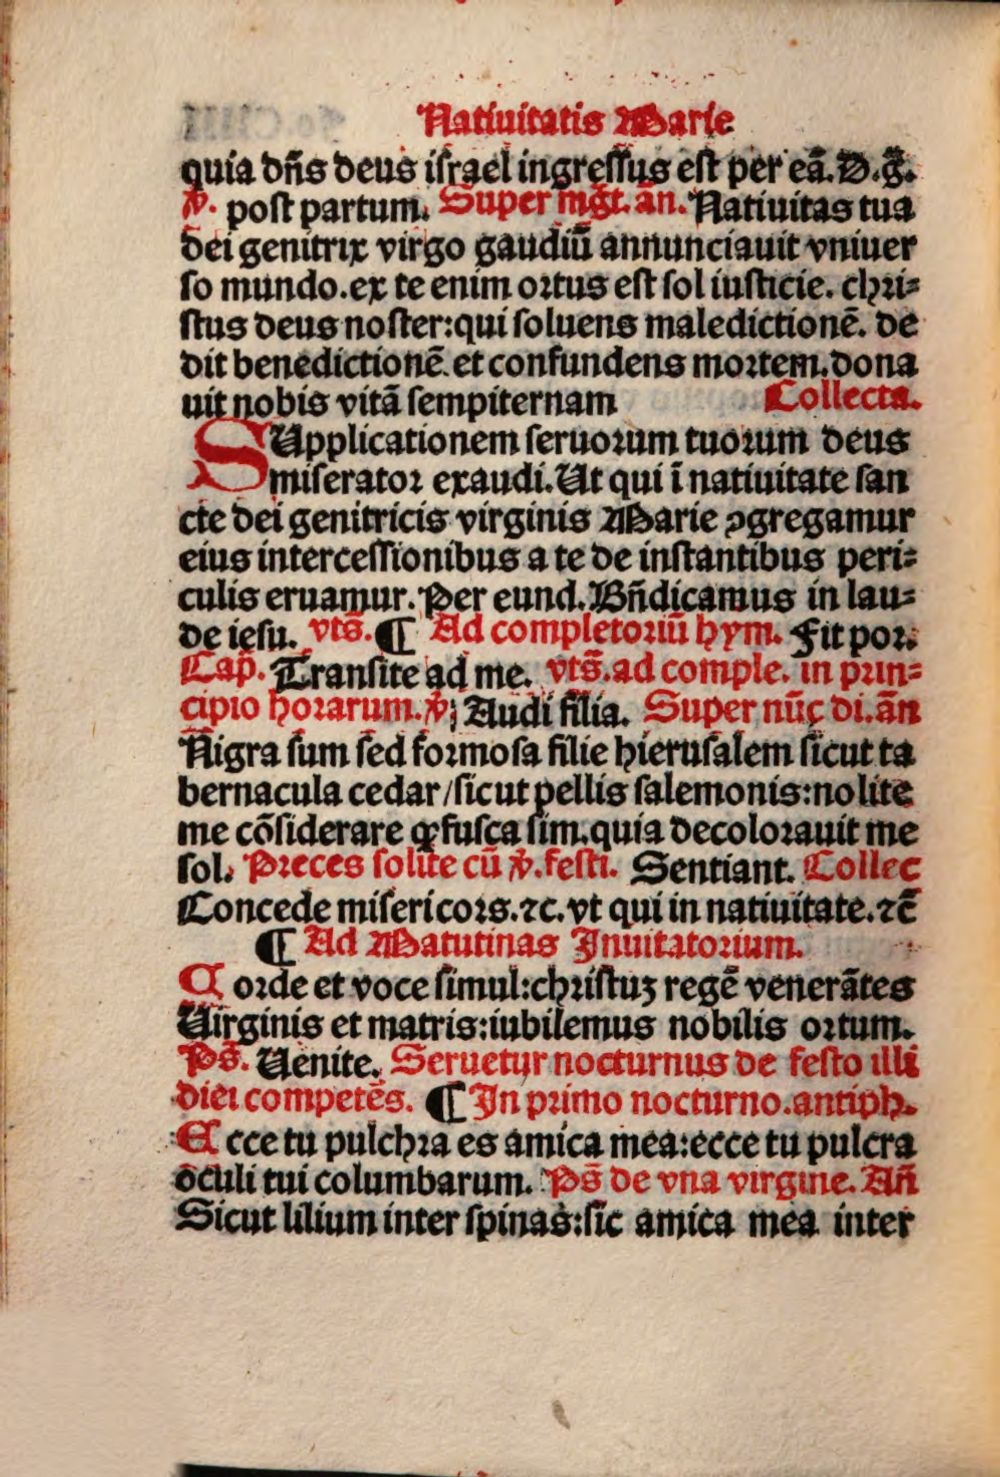 Natiuitatis Marie
quia dn̄s deus israel ingressus est per eā. D.g̃.
℣. post partum. Super mg̃t. an. Natiuitas tua
dei genitrix virgo gaudiū annunciauit vniuer
so mundo. ex te enim ortus est sol iusticie. chri⸗
stus deus noster: qui soluens maledictionē. de
dit benedictionē. et confundens mortem. dona
uit nobis vitā sempiternam Collecta.
SUpplicationem seruorum tuorum deus
miserator exaudi. Ut qui ī natiuitate san
cte dei genitricis virginis Marie ꝯgregamur
eius intercessionibus a te de instantibus peri⸗
culis eruamur. Per eund. Bn̄dicamus in lau⸗
de iesu. vts̄. ¶ Ad completoriū hym. Fit por.
Cap̄. Transite ad me. vts̄. ad comple. in prin⸗
cipio horarum. ℣; Audi filia. Super nūc di. ān
Nigra sum sed formosa filie hierusalem sicut ta
bernacula cedar / sicut pellis salemonis: nolite
me cōsiderare ꝙ fusca sim. quia decolorauit me
sol. Preces solite cū ℣. festi. Sentiant. Collec
Concede misericors. ⁊c. vt qui in natiuitate. ⁊c̄
¶ Ad Matutinas Inuitatorium.
Corde et voce simul: christuꝫ regē venerātes
Uirginis et matris: iubilemus nobilis ortum.
Ps̄. Uenite. Seruetur nocturnus de festo illi
diei competēs. ¶ In primo nocturno. antiph.
Ecce tu pulchra es amica mea: ecce tu pulcra
oculi tui columbarum. Ps̄ de vna virgine. An̄
Sicut lilium inter spinas: sic amica mea inter